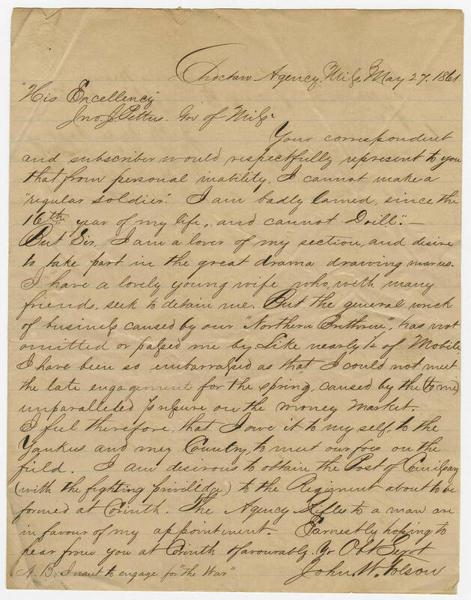 Choctaw Agency, Miss, May 27. 1861
"His Excellency"
Jno. J. Pettus. Gov of Miss.
Your correspondent
and subscriber would respectfully represent to you
that from personal inability, I cannot make a
"regular soldier" I am badly lamed, since the
16th year of my life, and cannot "Drill".
But Sir, I am a lover of my section, and desire
to take part in the great drama drawing near us.
I have a lovely young wife who, with many
friends, seek to detain me. But the general wreck
of business caused by our "Northern Brethren", has not
omitted or passed me by. Like nearly ¼ of Mobile
I have been so embarrassed as that I could not meet
the late engagement for the spring, caused by the (to me)
unparalleled pressure on the money market.
I feel therefore, that I owe it to my self, to the
Yankees and my Country, to meet our foe on the
field. I am desirous to obtain the Post of
(with the fighting privilidge) to the Regiment about to be
formed at Corinth. The Agency Rifles to a man are
in favour of my appointment. Earnestly hoping to
hear from you at Corinth favourably, Yr Obt Servt
N.B. I want to engage for "the War" John W. Folsom